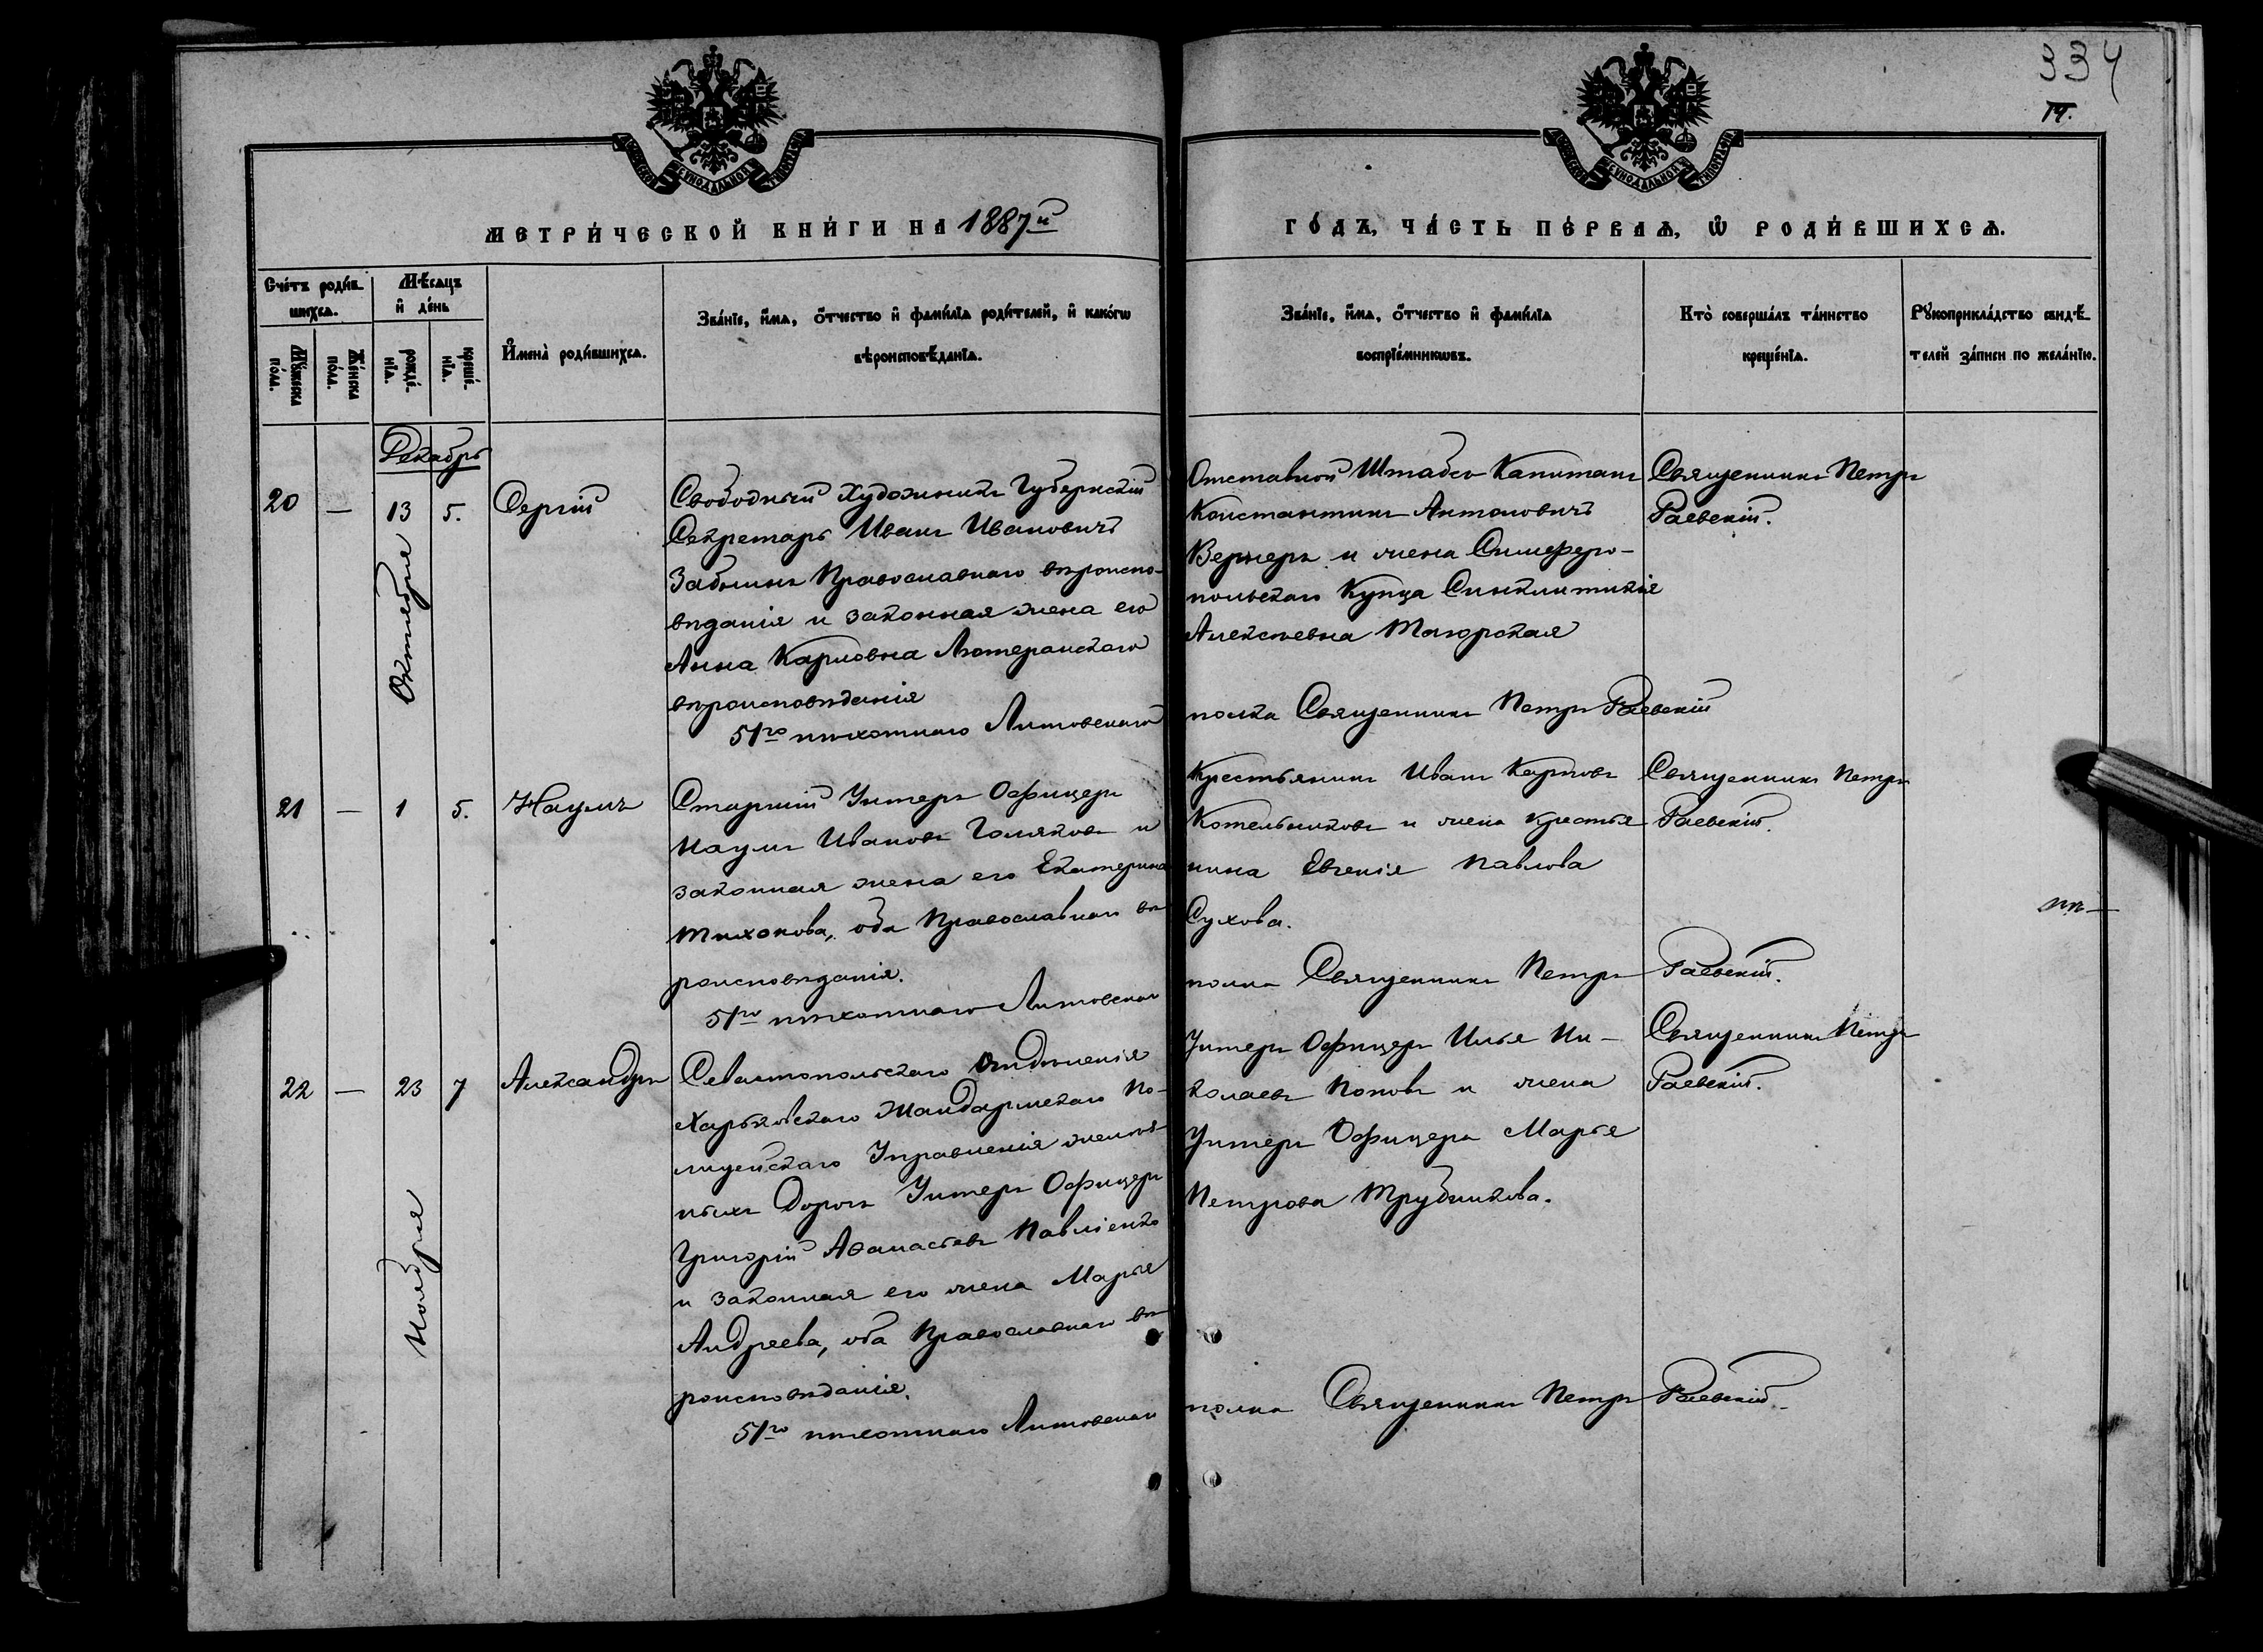 334
14.
МЕТРИ́ЧЕСКОЙ КНИ́ГИ НА 1887й
ГО́ДЪ, ЧА́СТЬ ПЕ́РВАѦ, Ѡ҆ РОДИ́ВШИХСѦ.
Сче́тъ роди́в-
шихсѧ.
Мꙋ́жеска по́ла.
Же́нска по́ла.
Мѣ́сѧцъ
и҆ де́нь
рожде́-
нїѧ.
креще́-
нїѧ.
И҆мена̀ роди́вшихсѧ.
Зва́нїе, и҆́мѧ, ѻ҆́тчество и҆ фами́лїѧ роди́телей, и҆ како́гѡ
вѣроисповѣ́данїѧ.
Зва́нїе, и҆́мѧ, ѻ҆́тчество и҆ фами́лїѧ
воспрїе́мникѡвъ.
Кто̀ соверша́лъ та́инство
креще́нїѧ.
Рꙋкоприкла́дство свидѣ́-
телей за́писи по жела́нїю.
Декабрь
20 — 13 5. Сергій
Октября
Свободный Художникъ Губернскій
Секретарь Иванъ Ивановичъ
Забылинъ Православнаго вѣроиспо-
вѣданія и законная жена его
Анна Карловна Лютеранскаго
вѣроисповѣданія
Отставной Штабсъ Капитанъ
Константинъ Антоновичъ
Вернеръ и жена Симферо-
польскаго Купца Синклитикія
Алексѣевна Тагорская
Священникъ Петръ
Раевскій.
51го пѣхотнаго Литовскаго полка Священникъ Петръ Раевскій
21 — 1 5. Наумъ
Ноября
Старшій Унтеръ Офицеръ
Наумъ Ивановъ Голяковъ и
законная жена его Екатерина
Тихонова, оба Православнаго вѣ
роисповѣданія.
Крестьянинъ Иванъ Карповъ
Котельниковъ и жена крестья
нина Евгенія Павлова
Сухова.
Священникъ Петръ
Раевскій.
51го пѣхотнаго Литовскаго полка Священникъ Петръ Раевскій.
22 — 23 7 Александръ
Севастопольскаго Отдѣленія
Харьковскаго Жандармскаго По-
лицейскаго Управленія желѣз
ныхъ Дорогъ Унтеръ Офицеръ
Григорій Аѳанасьевъ Павліенко
и законная его жена Марья
Андреева, оба Православнаго вѣ
роисповѣданія.
Унтеръ Офицеръ Илья Ни-
колаевъ Поповъ и жена
Унтеръ Офицера Марья
Петрова Трубникова.
Священникъ Петръ
Раевскій.
51го пѣхотнаго Литовскаго полка Священникъ Петръ Раевскій.